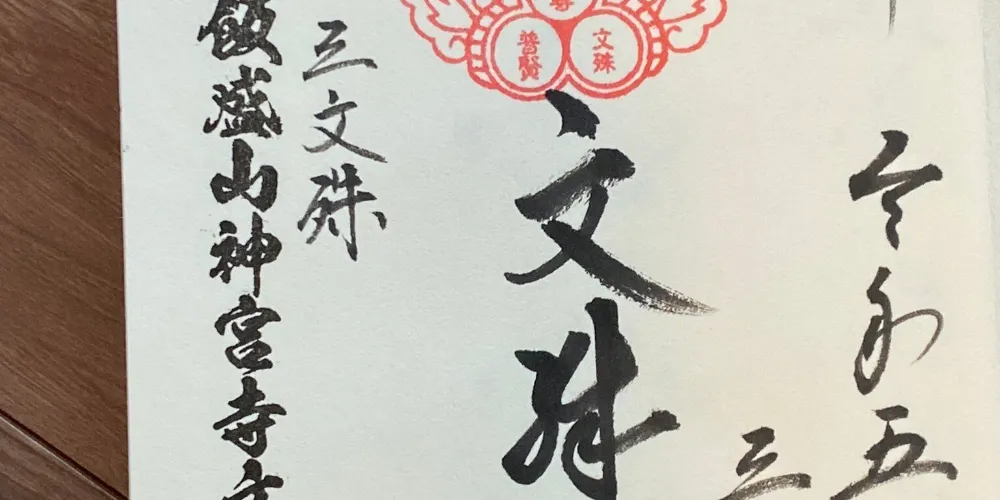 令和五
三
文殊
文殊
普賢
三文殊
飯盛山神宮寺